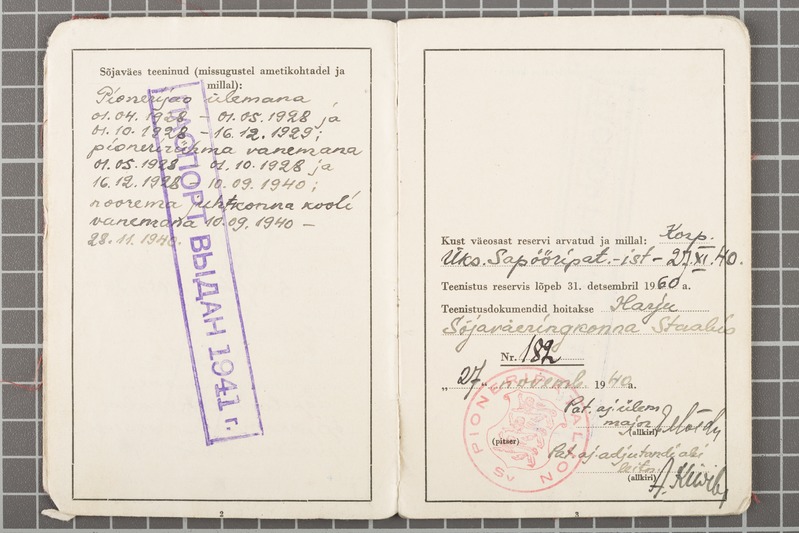 Sõjaväes teeninud (missugustel ametikohtadel ja
millal):
Pioneerijao ülemana
01.04.1928 – 01.05.1928 ja
01.10.1928 – 16.12.1929;
pioneerirühma vanemana
01.05.1928 01.10.1928 ja
16.12.1928 10.09.1940;
noorema juhtkonna kooli
vanemana 10.09.1940 –
28.11.1940.
ПАСПОРТ ВЫДАН 1941 г.
2
Kust väeosast reservi arvatud ja millal: Korp.
Üks. Sapööripat.-ist – 27.XI.40.
Teenistus reservis lõpeb 31. detsembril 1960 a.
Teenistusdokumendid hoitakse Harju
Sõjaväeringkonna Staabis
Nr. 182
„27“ novemb. 1940 a.
PIONEERIPATALJON
Pat. aj. ülem
major
(allkiri)
(pitser)
Pat. aj. adjutandi abi
leitn.
(allkiri)
3